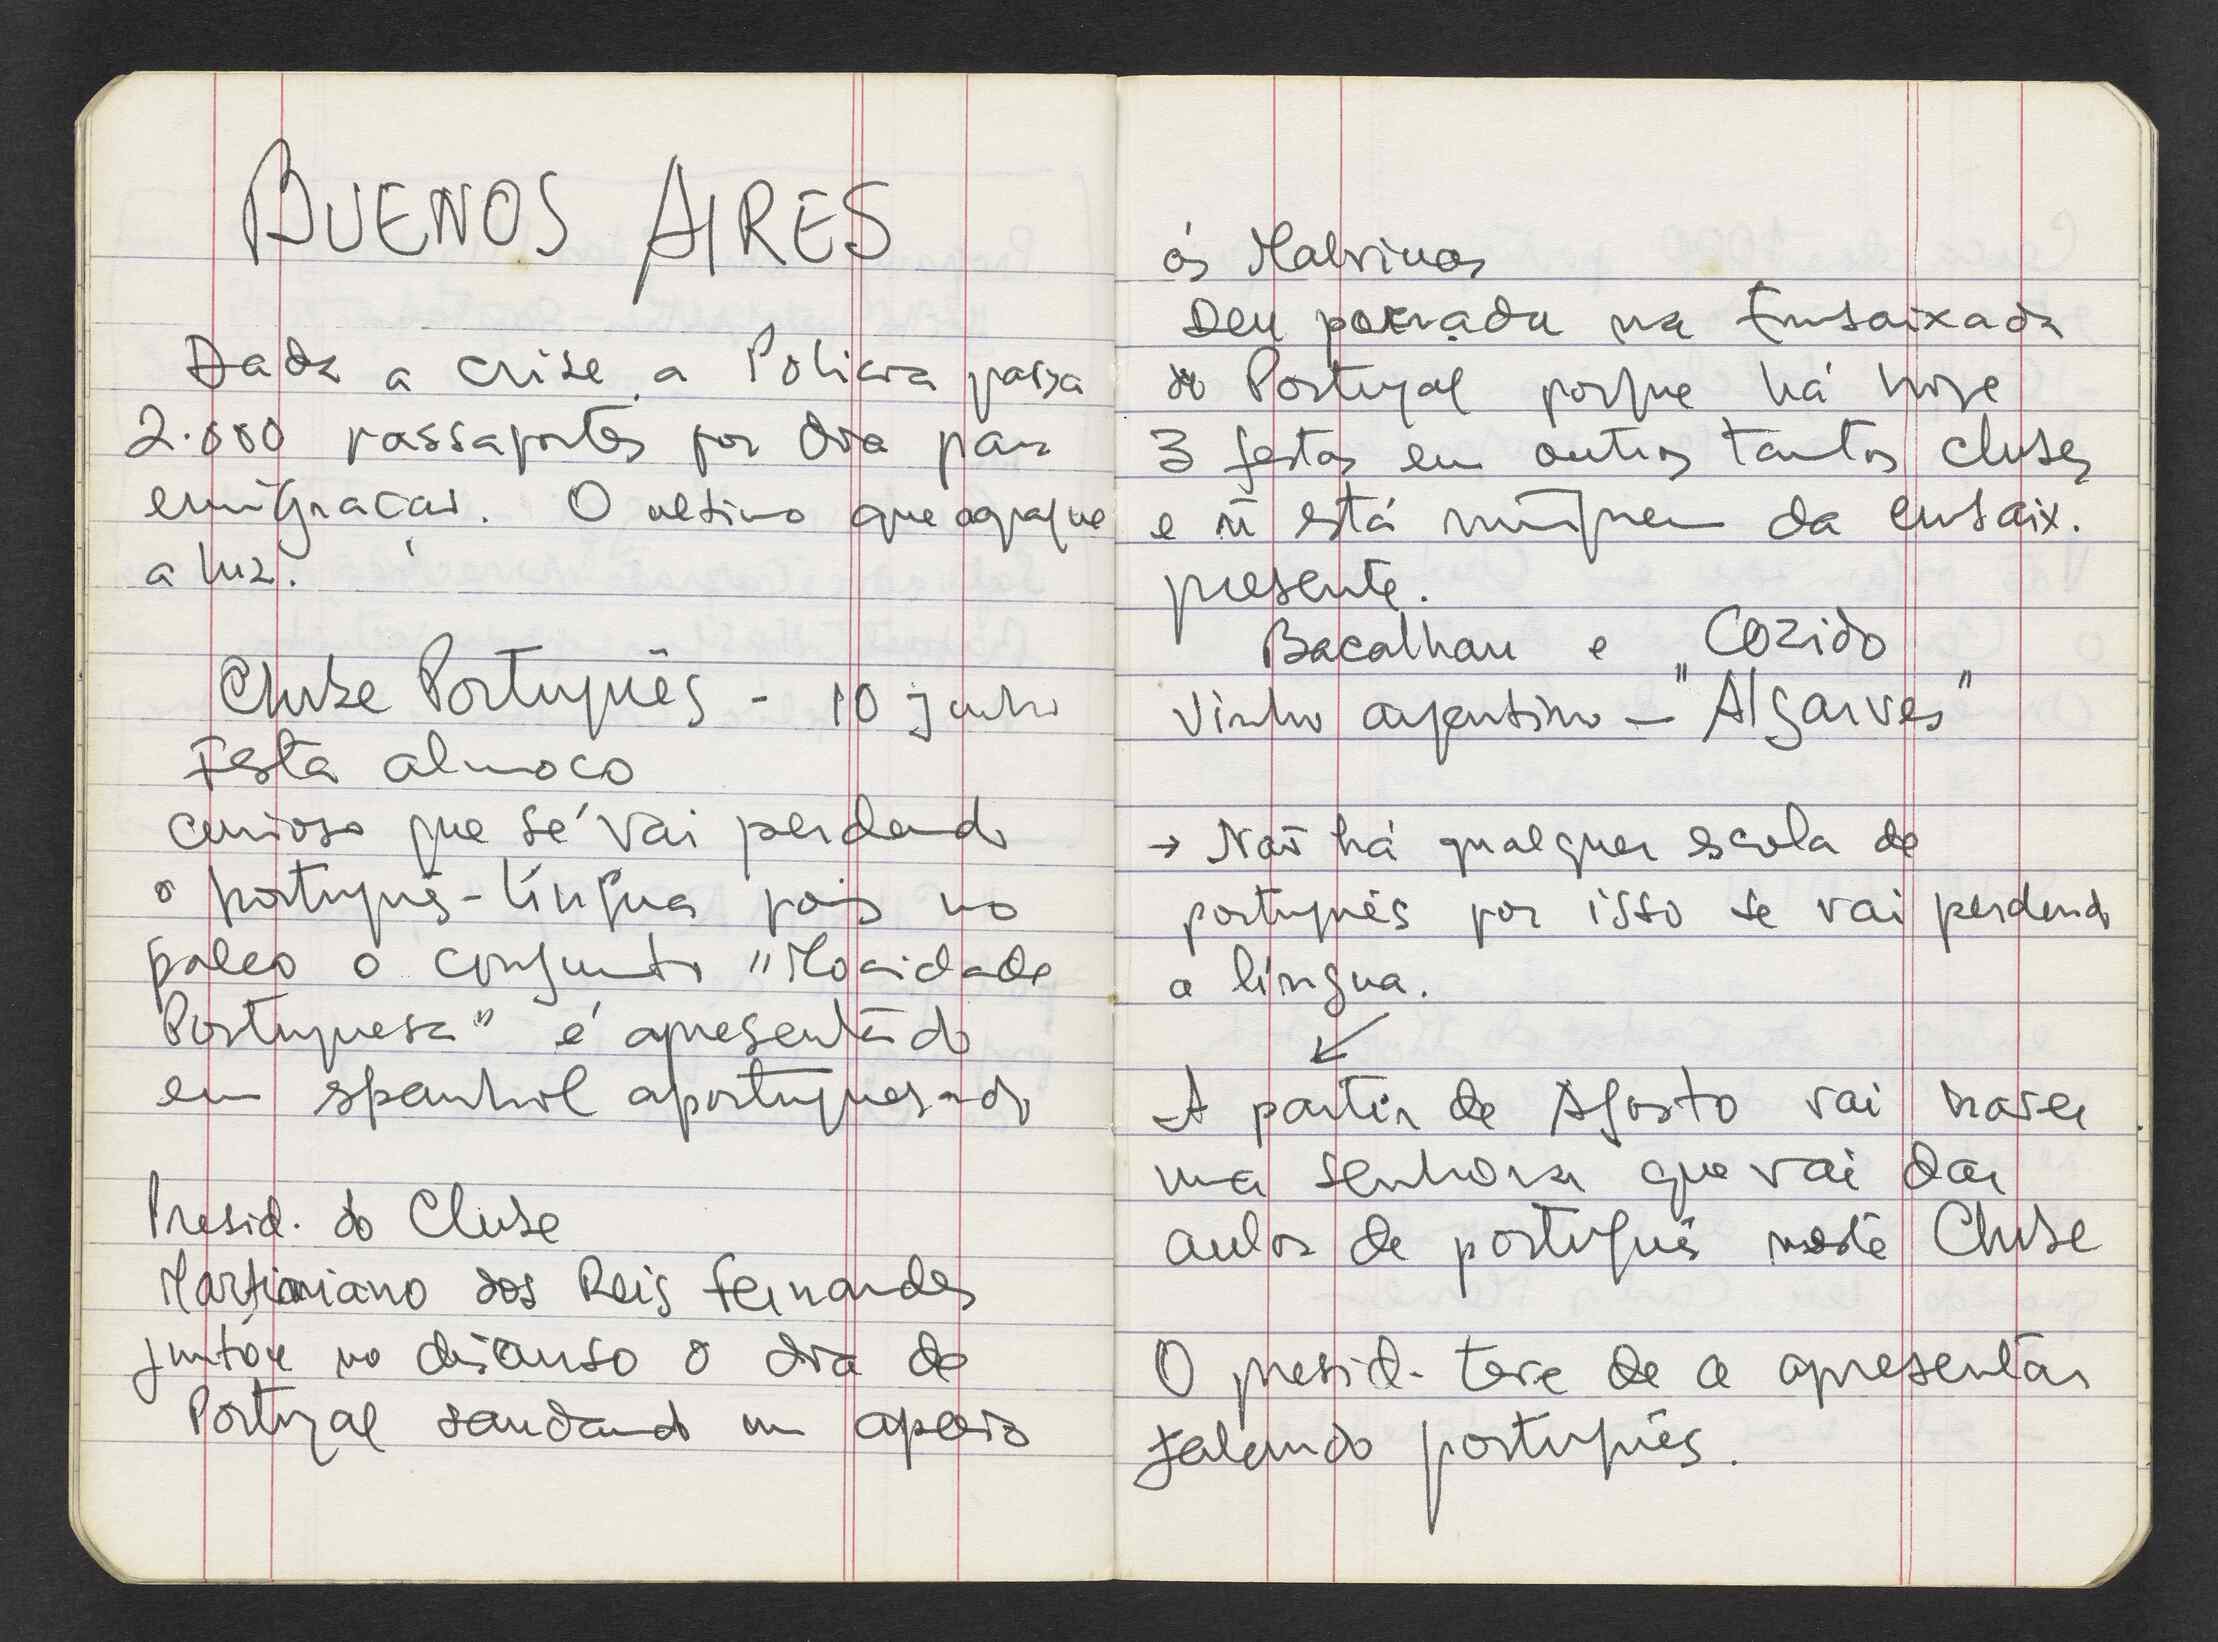 BUENOS AIRES
Dada a crise a Policia passa
2.000 passaportes por dia para
emigração. O ultimo que apague
a luz.
Clube Português - 10 junho
Festa almoço
curioso que se vai perdendo
o português-língua pois no
palco o conjunto "Mocidade
Portuguesa" é apresentado
em espanhol aportuguesado
Presid. do Clube
dos Reis Fernandes
juntou no discurso o dia de
Portugal saudando um apoio
ás Malvinas
Deu na Embaixada
de Portugal porque há hoje
3 festas em outros tantos clubes
e ñ está ninguem da embaix.
presente.
Bacalhau e Cozido
Vinho argentino - "Algarves"
→ Não há qualquer escola de
português por isso se vai perdendo
a língua.
↙
A partir de Agosto vai haver
uma senhora que vai dar
aulas de português neste Clube
O presid. teve de a apresentar
falando português.